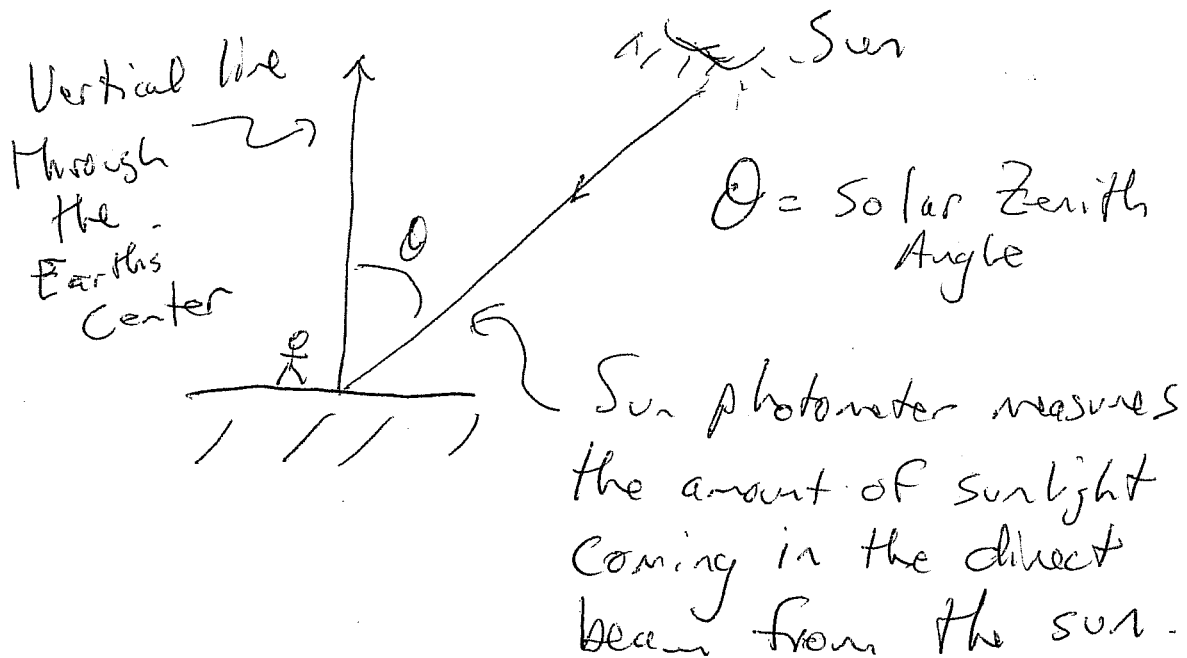 Vertical line
Through
the
Earth's
Center
Sun
θ
θ = Solar Zenith
Angle
Sun photometer measures
the amount of sunlight
coming in the direct
beam from the sun.